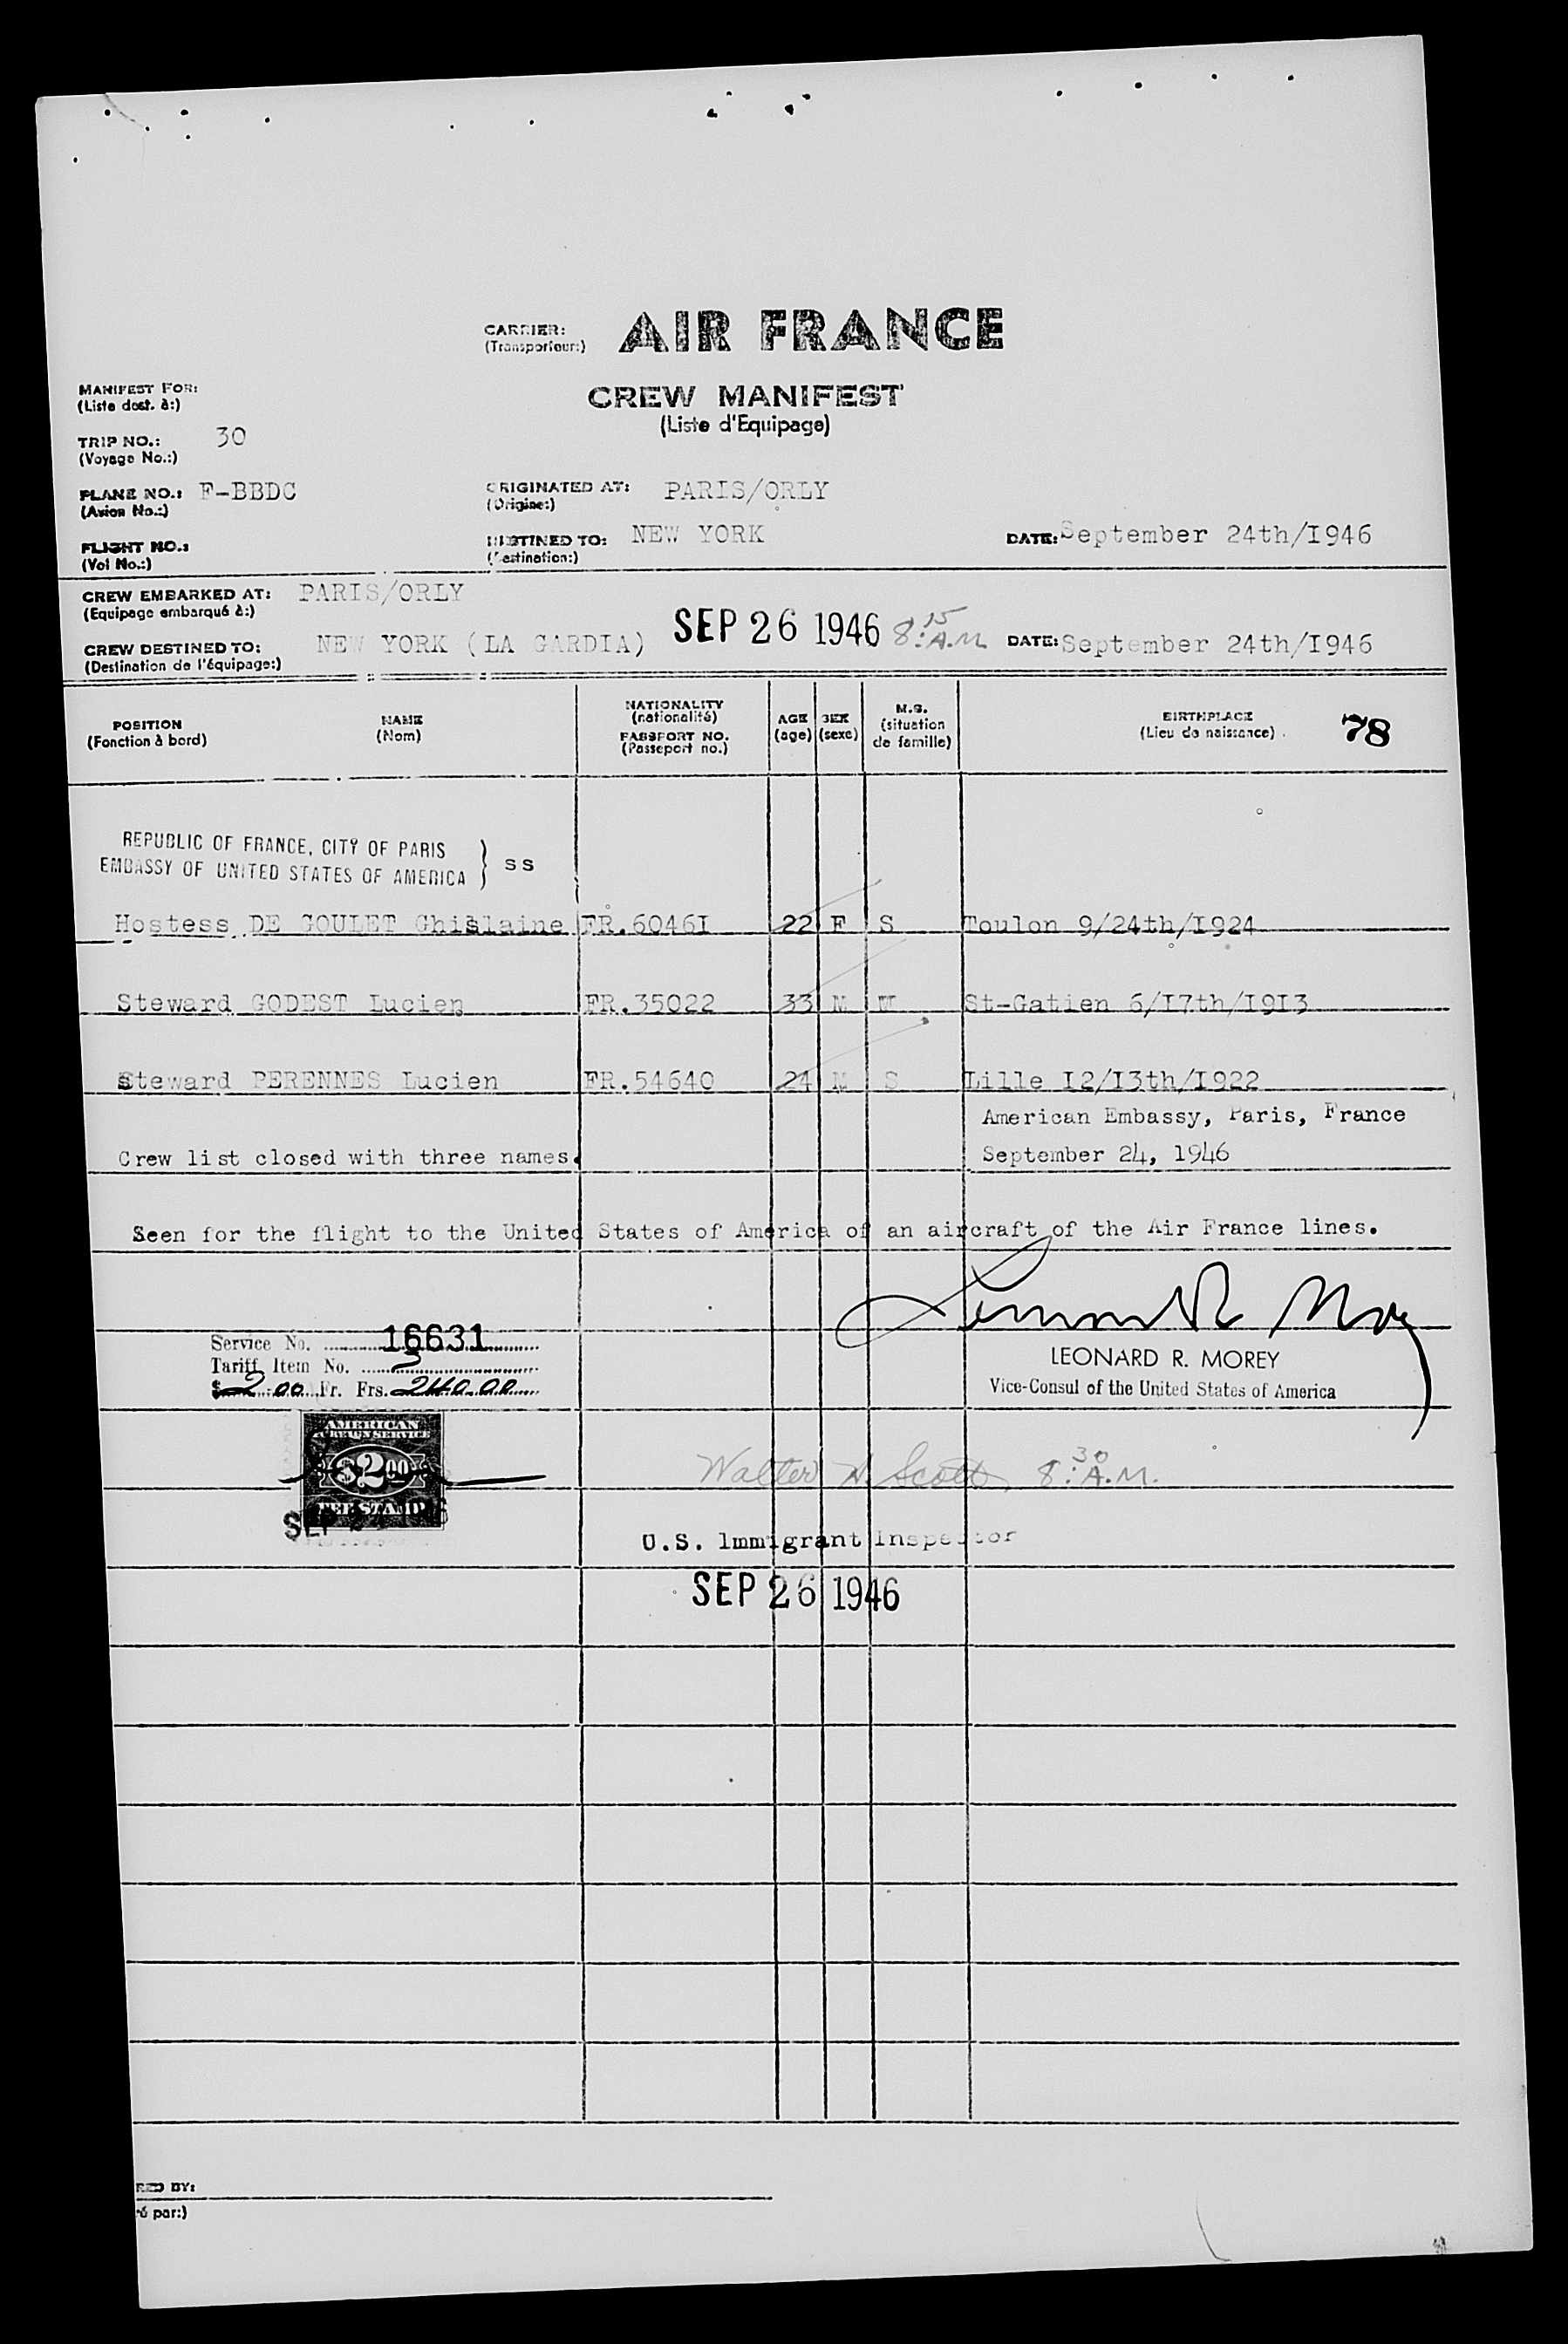 CARRIER: AIR FRANCE
(Transporteur:)
MANIFEST FOR:
(Liste dest. à:)
CREW MANIFEST
(Liste d'Equipage)
TRIP NO.: 30
(Voyage No.:)
PLANE NO.: F-BBDC
(Avion No.:)
ORIGINATED AT: PARIS/ORLY
(Origine:)
FLIGHT NO.:
(Vol No.:)
DESTINED TO: NEW YORK
(Destination:)
DATE: September 24th/I946
CREW EMBARKED AT: PARIS/ORLY
(Equipage embarqué à:)
CREW DESTINED TO: NEW YORK (LA GARDIA)
(Destination de l'équipage:)
SEP 26 1946 8:15 A.M
DATE: September 24th/I946
POSITION
(Fonction à bord)
NAME
(Nom)
NATIONALITY
(nationalité)
PASSPORT NO.
(Passeport no.)
AGE
(age)
SEX
(sexe)
M.S.
(situation
de famille)
BIRTHPLACE
(Lieu de naissance)
78
REPUBLIC OF FRANCE, CITY OF PARIS
EMBASSY OF UNITED STATES OF AMERICA } SS
Hostess DE GOULET Ghislaine FR.6046I 22 F S Toulon 9/24th/I924
Steward GODEST Lucien FR.35022 33 M M St-Gatien 6/I7th/I9I3
Steward PERENNES Lucien FR.54640 24 M S Lille I2/I3th/I922
American Embassy, Paris, France
Crew list closed with three names. September 24, 1946
Seen for the flight to the United States of America of an aircraft of the Air France lines.
Service No. 16631
Tariff Item No. 3
$ 2.00 Fr. Frs. 240.00
LEONARD R. MOREY
Vice-Consul of the United States of America
AMERICAN
FOREIGN SERVICE
$2.00
FEE STAMP
Walter H. Scott 8:30 A.M.
U.S. Immigrant Inspector
SEP 26 1946
RED BY:
ré par:)